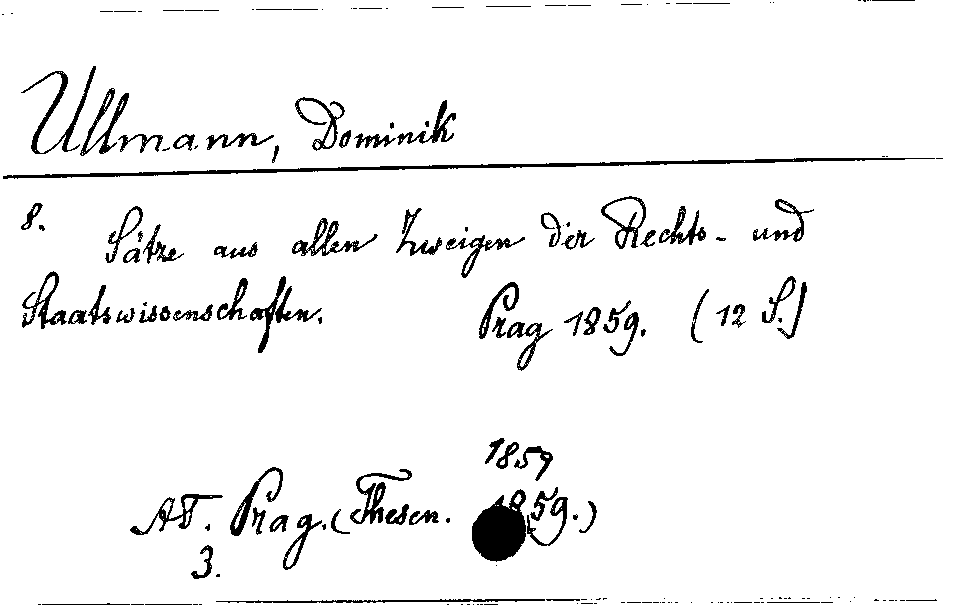 Ullmann, Dominik
8. Sätze aus allen Zweigen der Rechts- und
Staatswissenschaften. Prag 1859. (12 S.)
1859
AT. Prag. (Thesen. 1859.)
3.